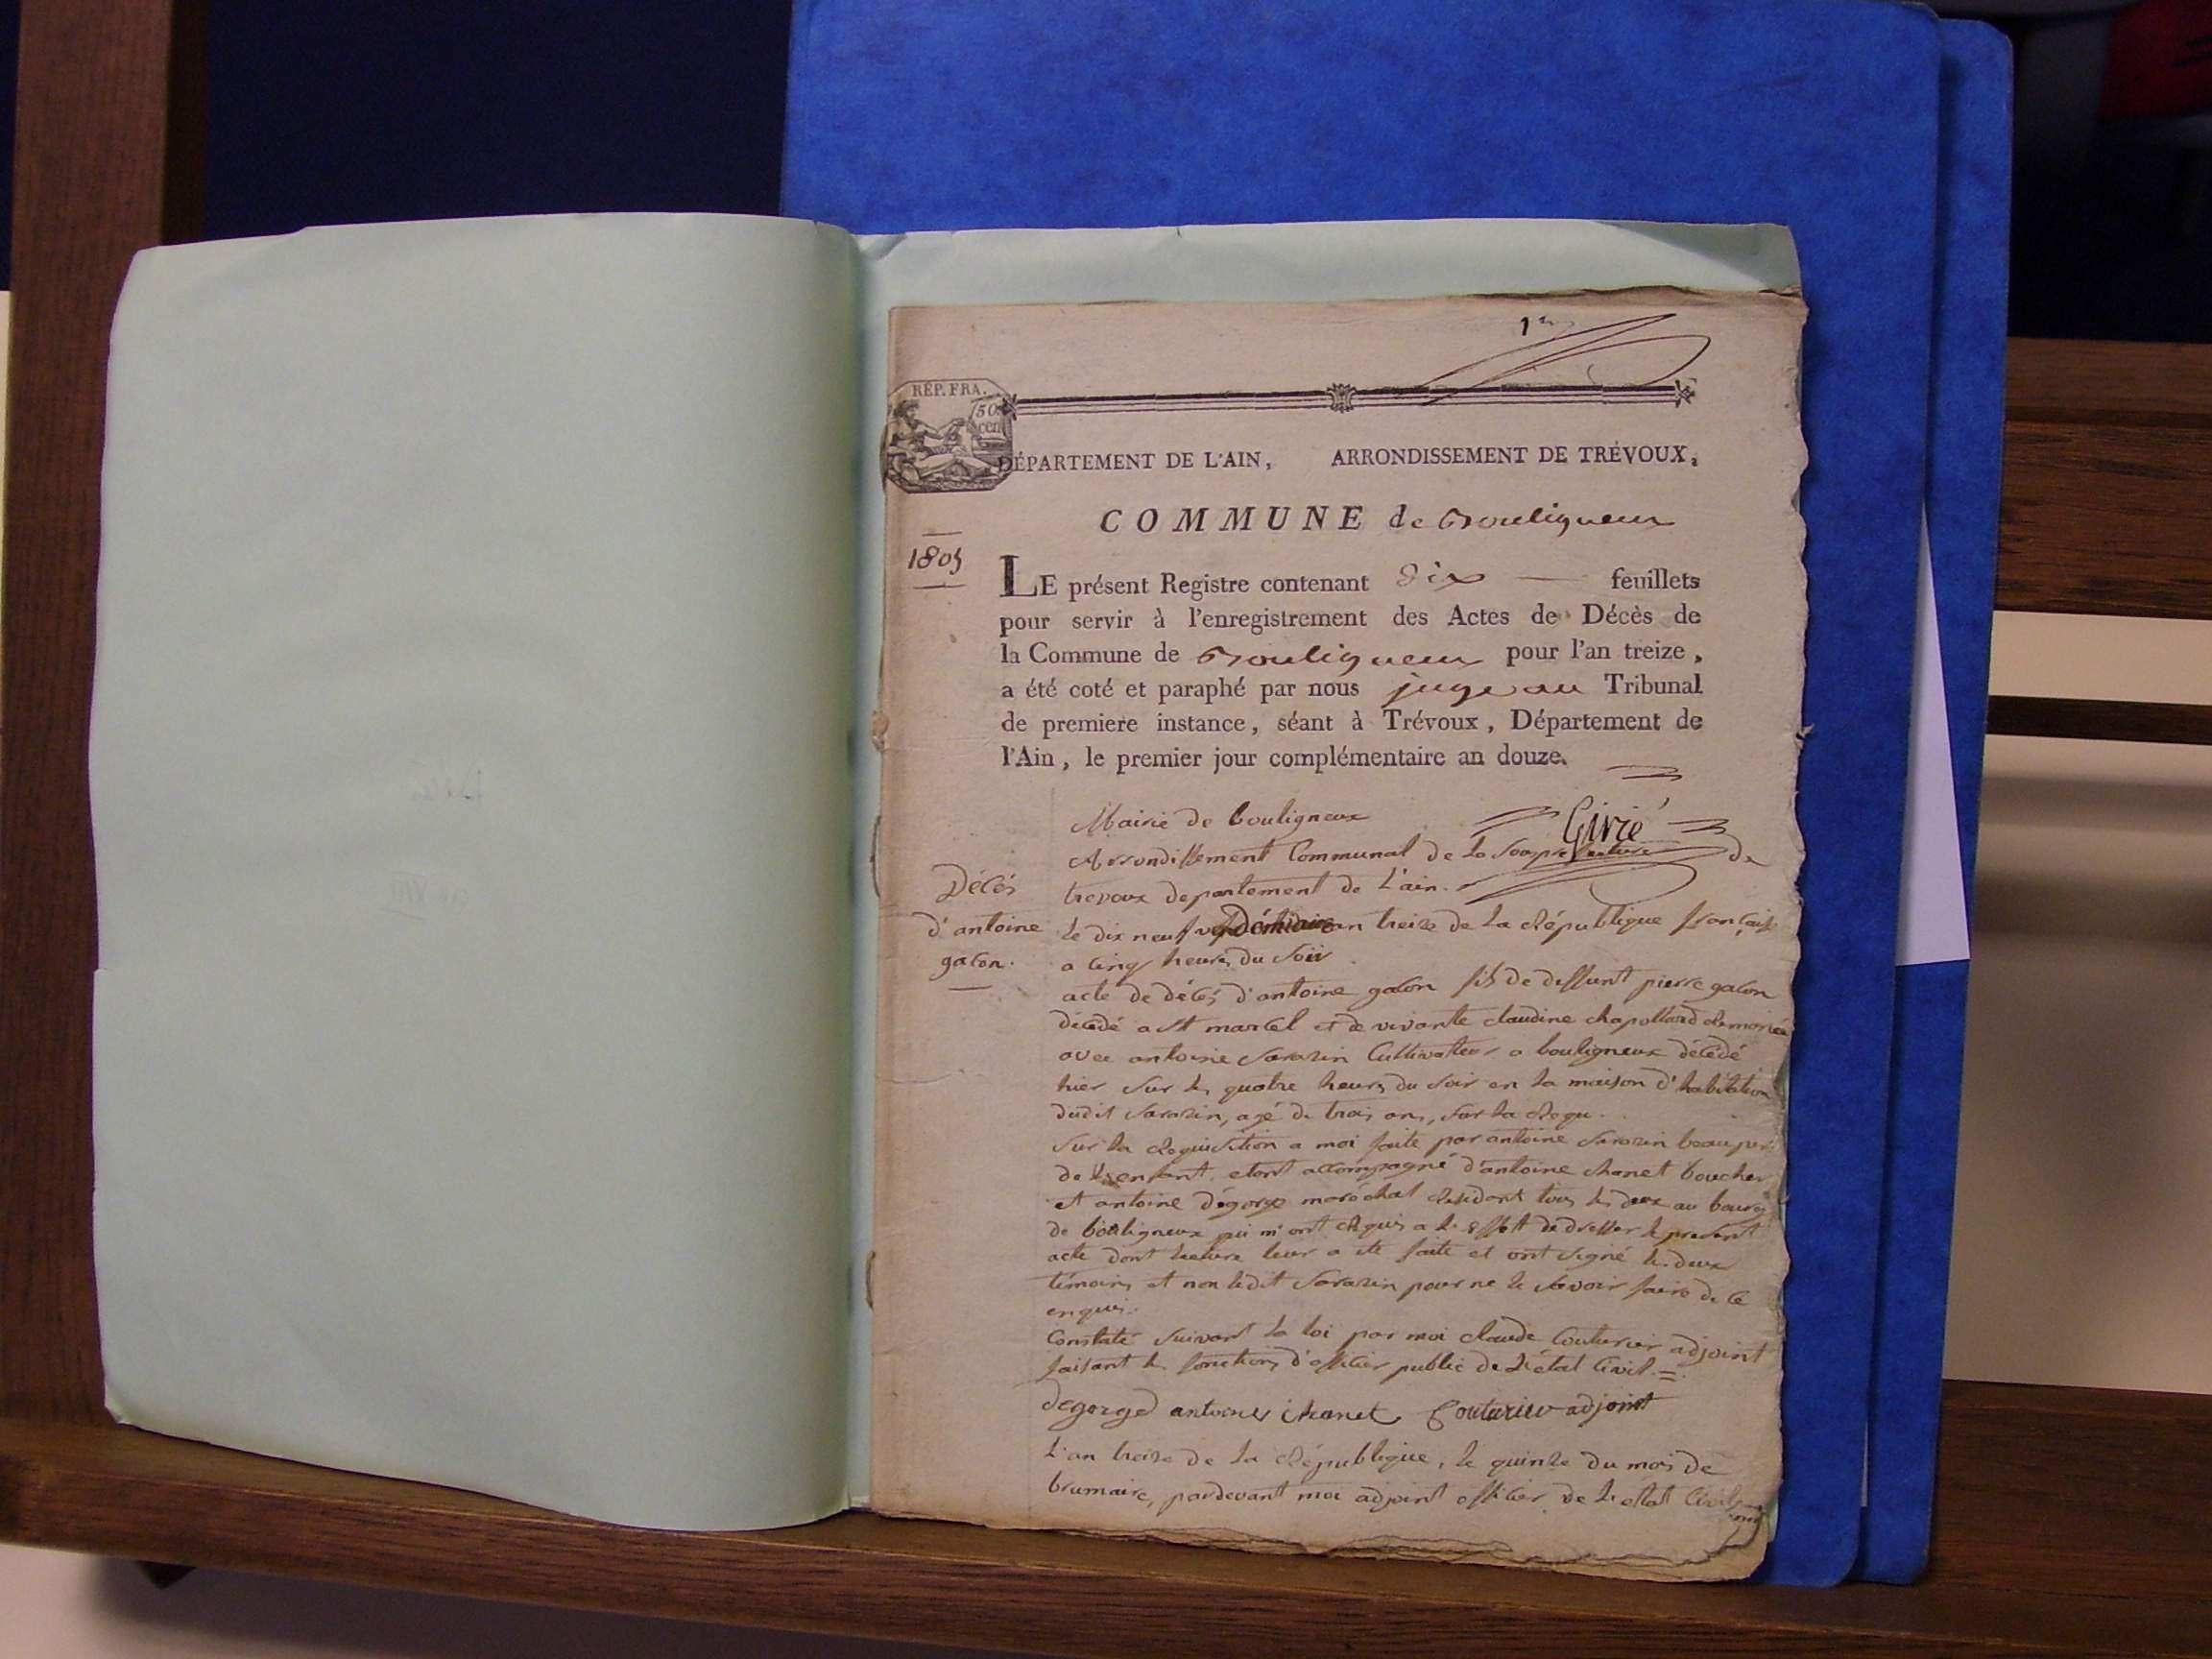 1er
RÉP. FRA.
50
cen
DÉPARTEMENT DE L'AIN, ARRONDISSEMENT DE TRÉVOUX,
COMMUNE de Bouligneux
1805
LE présent Registre contenant Dix feuillets
pour servir à l'enregistrement des Actes de Décès de
la Commune de Bouligneux pour l'an treize,
a été coté et paraphé par nous juge au Tribunal
de premiere instance, séant à Trévoux, Département de
l'Ain, le premier jour complémentaire an douze.
Givré
Mairie de bouligneux
Arrondissement Communal de la de
trevoux departement de L'ain.
Décés
d'antoine
galon.
le dix neuf vendémiaire an treize de la République française
a cinq heures du soir
acte de décés d'antoine galon fils de deffunt pierre galon
décédé a st marcel et de vivante claudine chapolard remariée
avec antoine Sarazin Cultivateur a bouligneux décédé
hier sur les quatre heures du soir en la maison d'habitation
dudit Sarazin, agé de trois ans, sur la Requ.
Sur la Requisition a moi faite par antoine Sarazin beau pere
de enfant. etant accompagné d'antoine chanet boucher
et antoine dégorge maréchal Residants tous les deux au bourg
de bouligneux qui m'ont Requis a l'effet de dresser le present
acte dont lecture leur a été faite et ont signé les deux
témoins et non ledit Sarazin pour ne le savoir faire de ce
enquis.
Constaté suivant la loi par moi claude Couturier adjoint
faisant les fonctions d'officier public de L'état Civil =
degorge antoines chanet Couturier adjoint
L'an treize de la République, le quinze du mois de
brumaire, pardevant moi adjoint officier de L'etat Civil